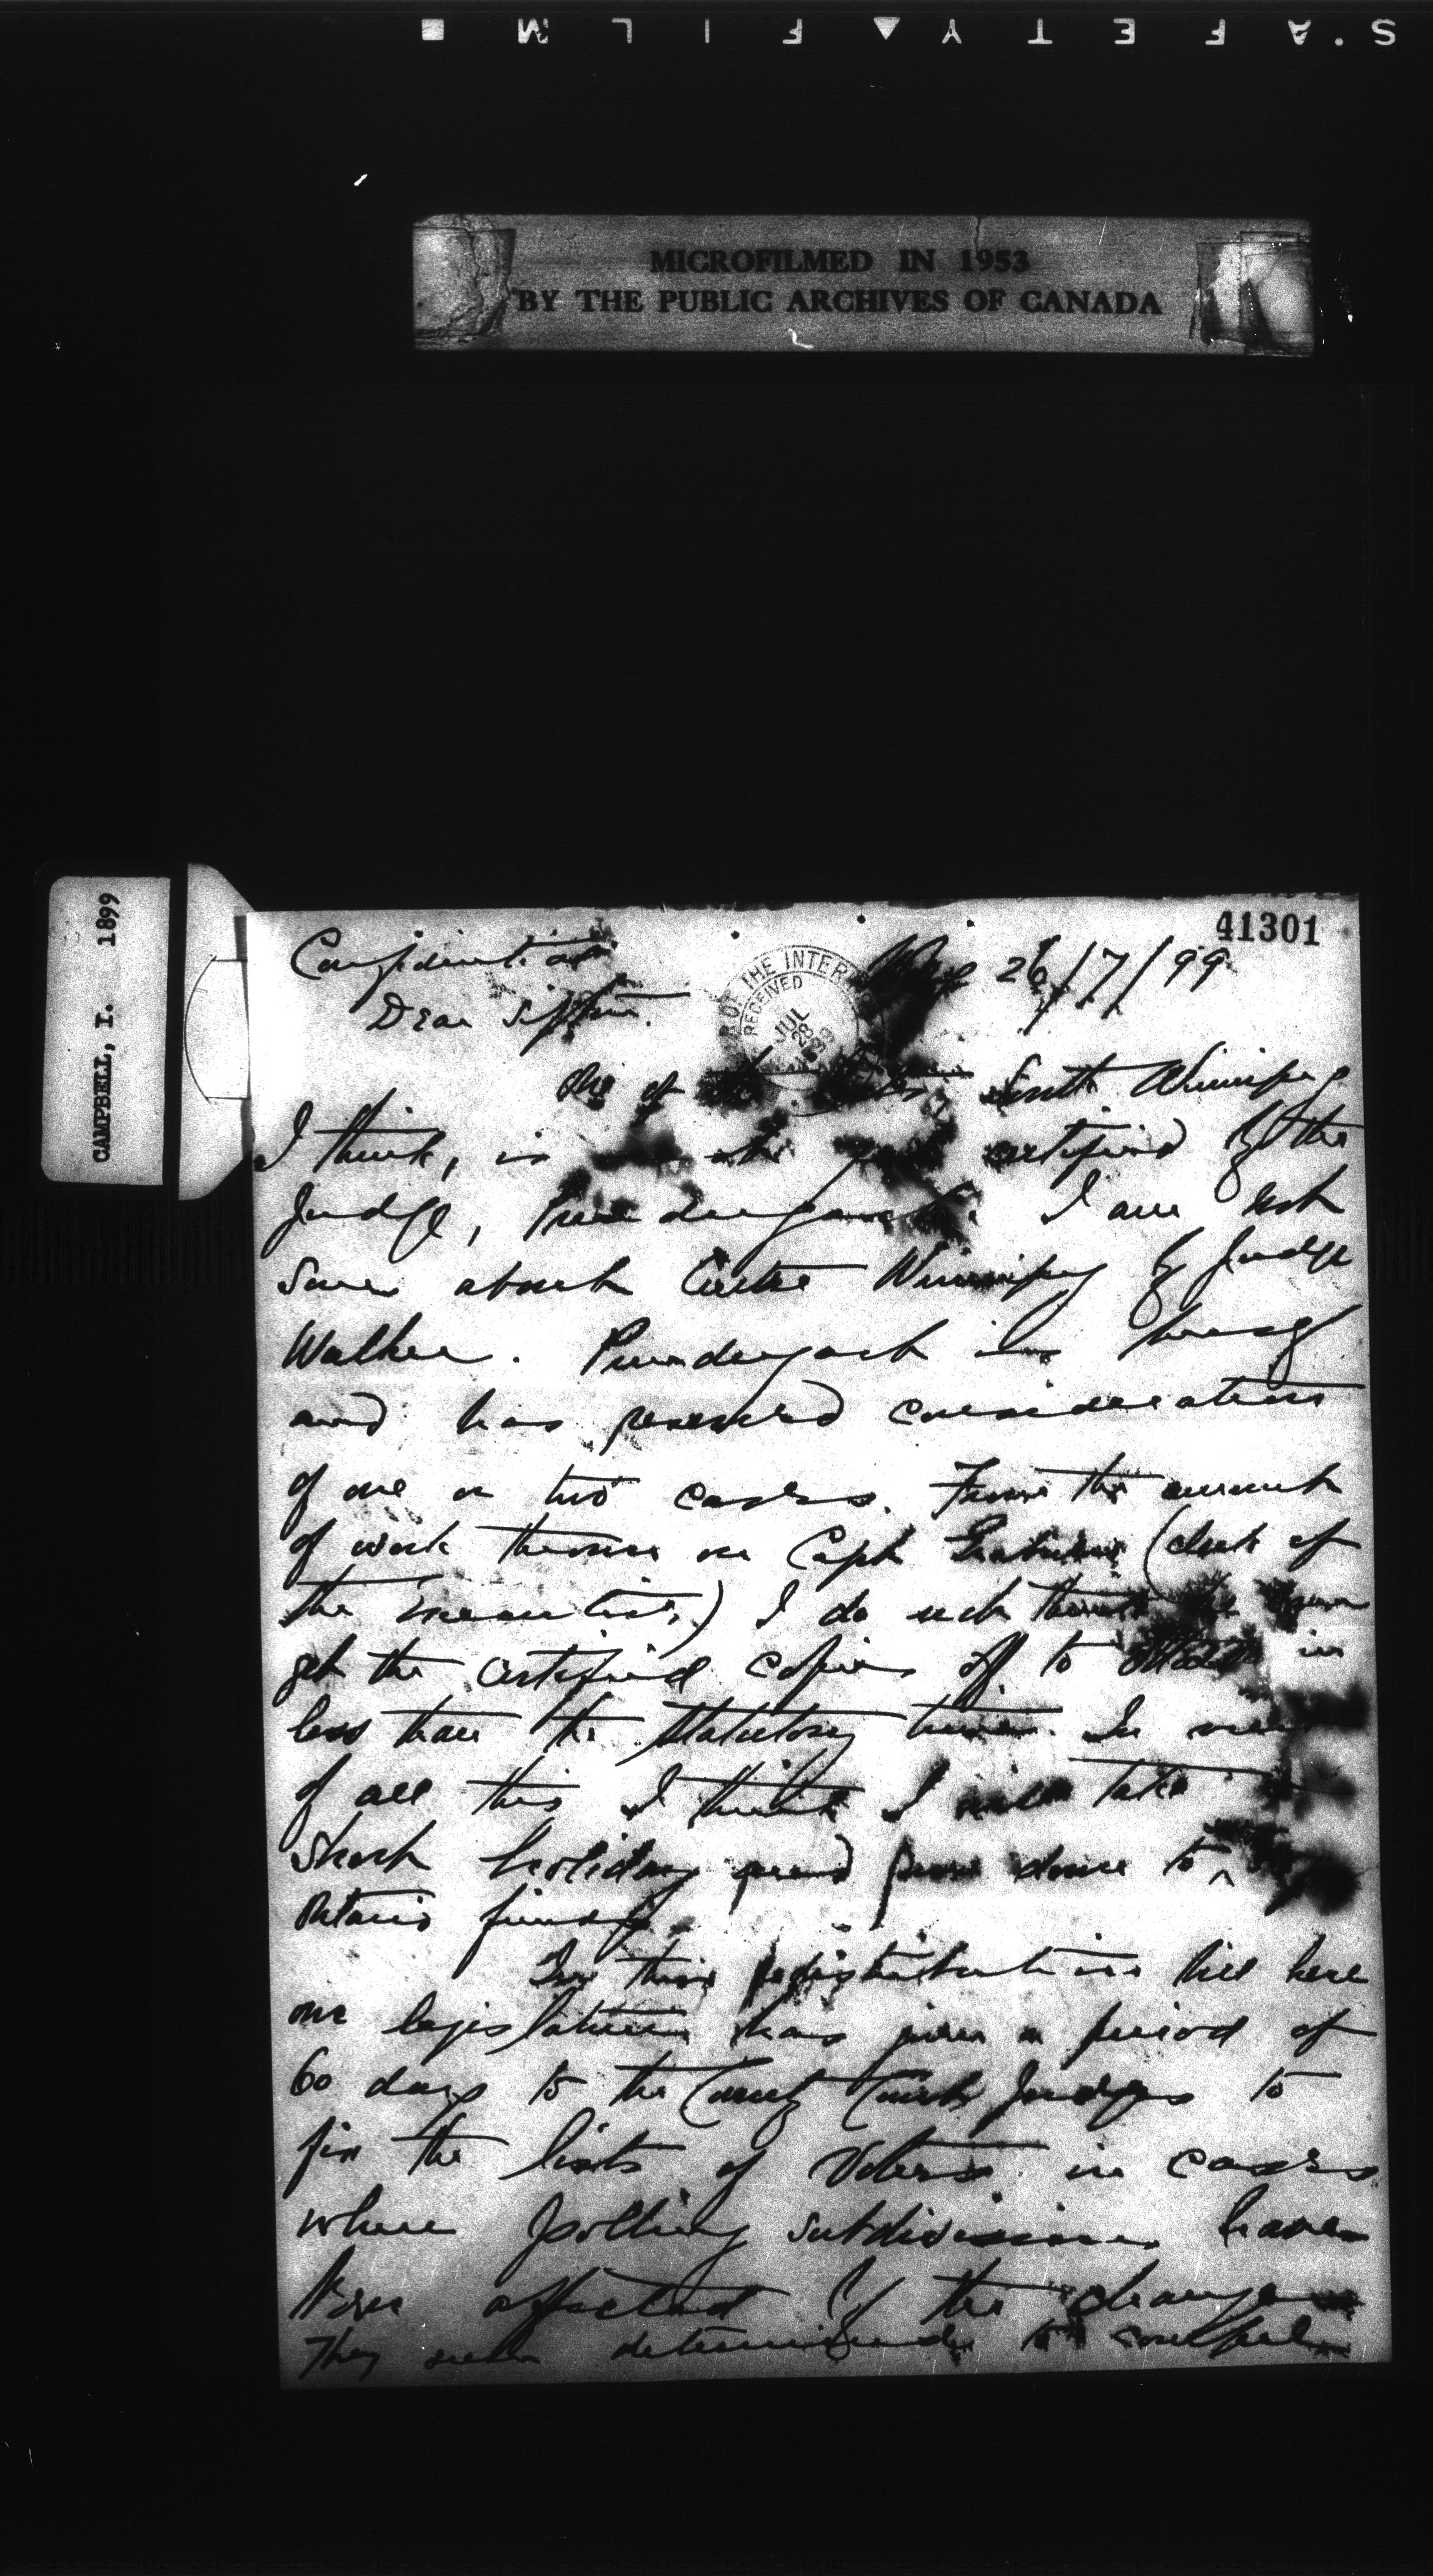 S.AFETY▲FILM■
MICROFILMED IN 1953
BY THE PUBLIC ARCHIVES OF CANADA
CAMPBELL, I. 1899
41301
Confidential Wpg 26/7/99
OF THE INTER
RECEIVED
JUL
28
Dear Sifton.
One of South Winnipeg
I think, is certified by the
Judge, Prendergast. I am not
sure about Centre Winnipeg by Judge
Walker. Prendergast is busy
and has reserved consideration
of one or two cases. From the amount
of work thrown on Capt (clerk of
the executive,) I do not think
get the certified copies off to Ottawa in
less than the statutory time. In view
of all this I think I will take
short holiday and run down to
Ontario
In their redistribution bill here
our legislature has given a period of
60 days to the County Court Judges to
fix the lists of Voters in cases
where polling subdivisions have
been affected by the change
They determined to compel